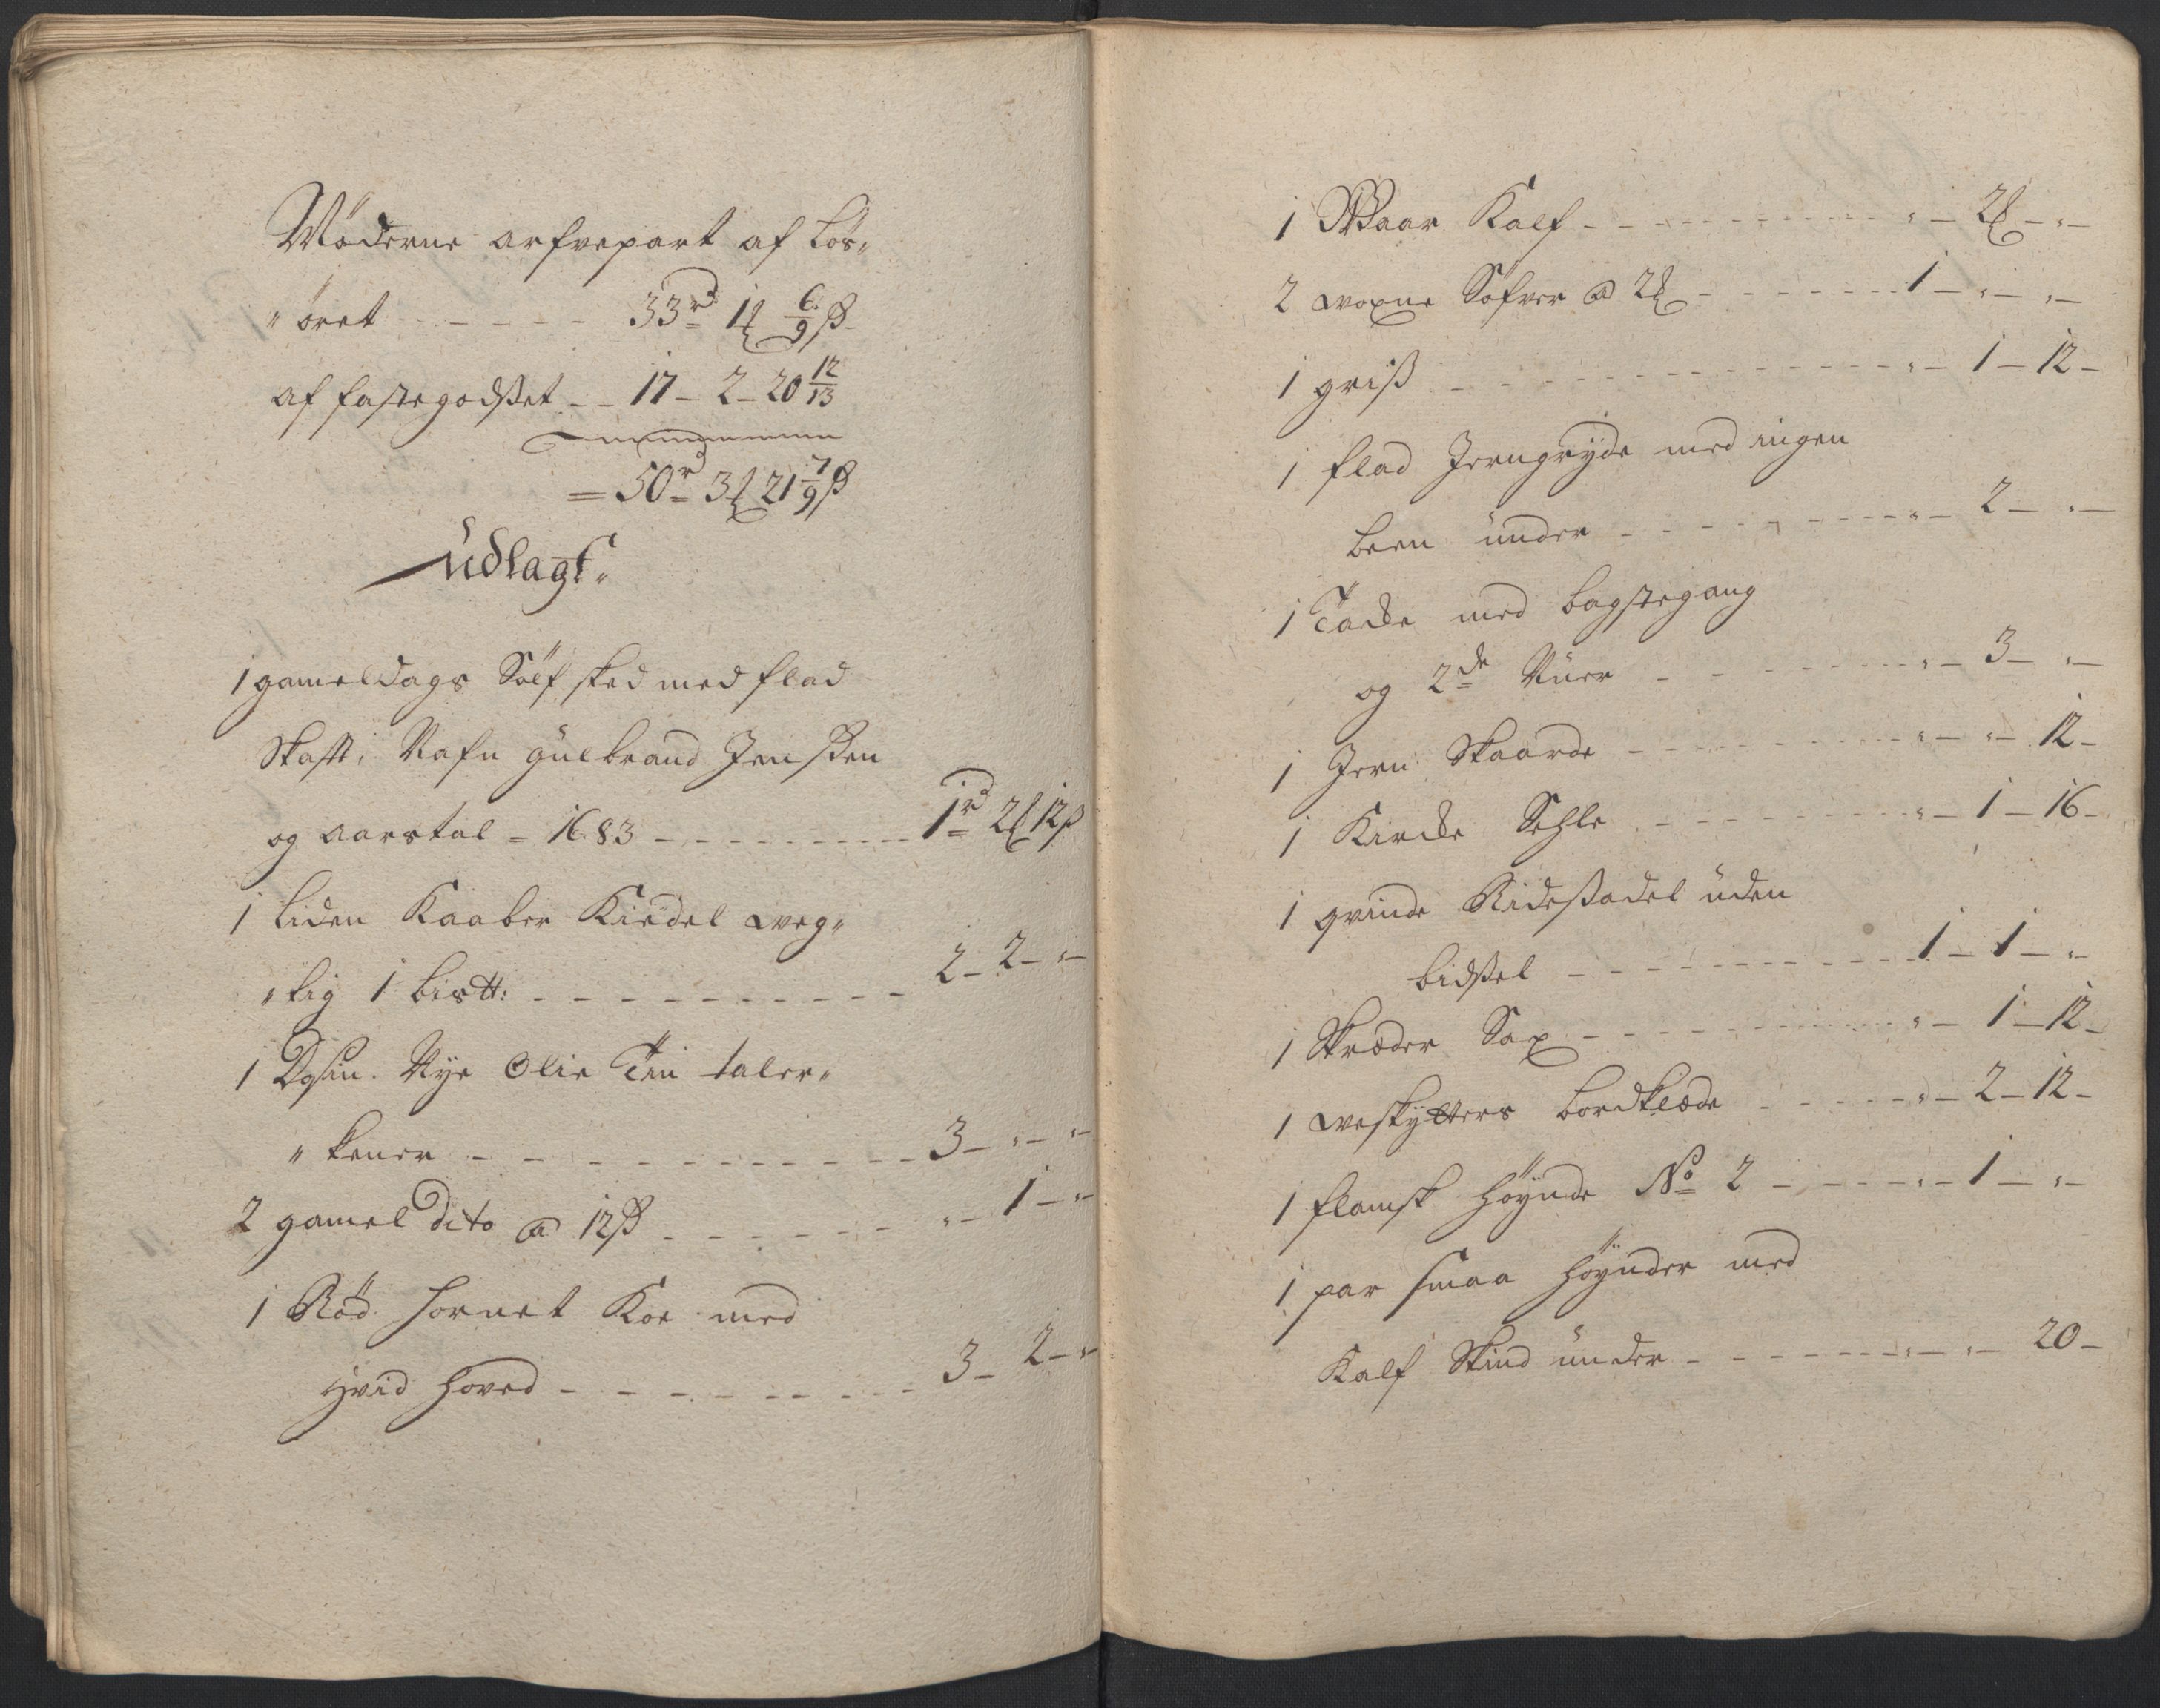 Möderne arfvepart af Lös„
„ öret - - - - - 33 rd 1 ₰ 6/9 ß
af fastegodsset - - 17 - 2 - 20 12/13
= 50 rd 3 ₰ 21 7/9 ß
Udlagt.
1 gameldags Sölf sked med flad
Skaft. Nafn Gulbrand Jenssen
og aarstal - 1683 - - - - - - - 1 rd 2 ₰ 12 ß
1 Liden Kaaber Kiedel weg„
„tig 1 bistt: - - - - - - - - - 2 - 2 - „ -
1 Dysin. Nye Olie Tin taler„
„ kener - - - - - - - - - - 3 - „ - „ -
2 gamel dito a 12 ß - - - - - - „ - 1 - „
1 Röd hornet Koe med
Hvid hoved - - - - - - - - - 3 - 2 - „
1 Waar Kalf - - - - - - - - „ - 2 ₰ - „ -
2 woxne Söfver a 2 ₰ - - - - - 1 - „ - „ -
1 griss - - - - - - - - - - „ - 1 - 12 -
1 flad Jerngryde med ingen
been under - - - - - - - - „ - 2 - „ -
1 Tacke med bagstegang
og 2de Ruer - - - - - - - „ - 3 - „ -
1 Jern Skaarde - - - - - - - „ - „ - 12 -
1 Kircke Sehle - - - - - - - „ - 1 - 16 -
1 qvinde Ridessadel uden
bidssel - - - - - - - - - 1 - 1 - „ -
1 Skræder Sax - - - - - - - - „ - 1 - 12 -
1 weskytters bordklæde - - - - „ - 2 - 12 -
1 flamsk Höynde No 2 - - - - „ - 1 - „ -
1 par smaa Höynder med
Kalf Skind under - - - - - - „ - „ - 20 -